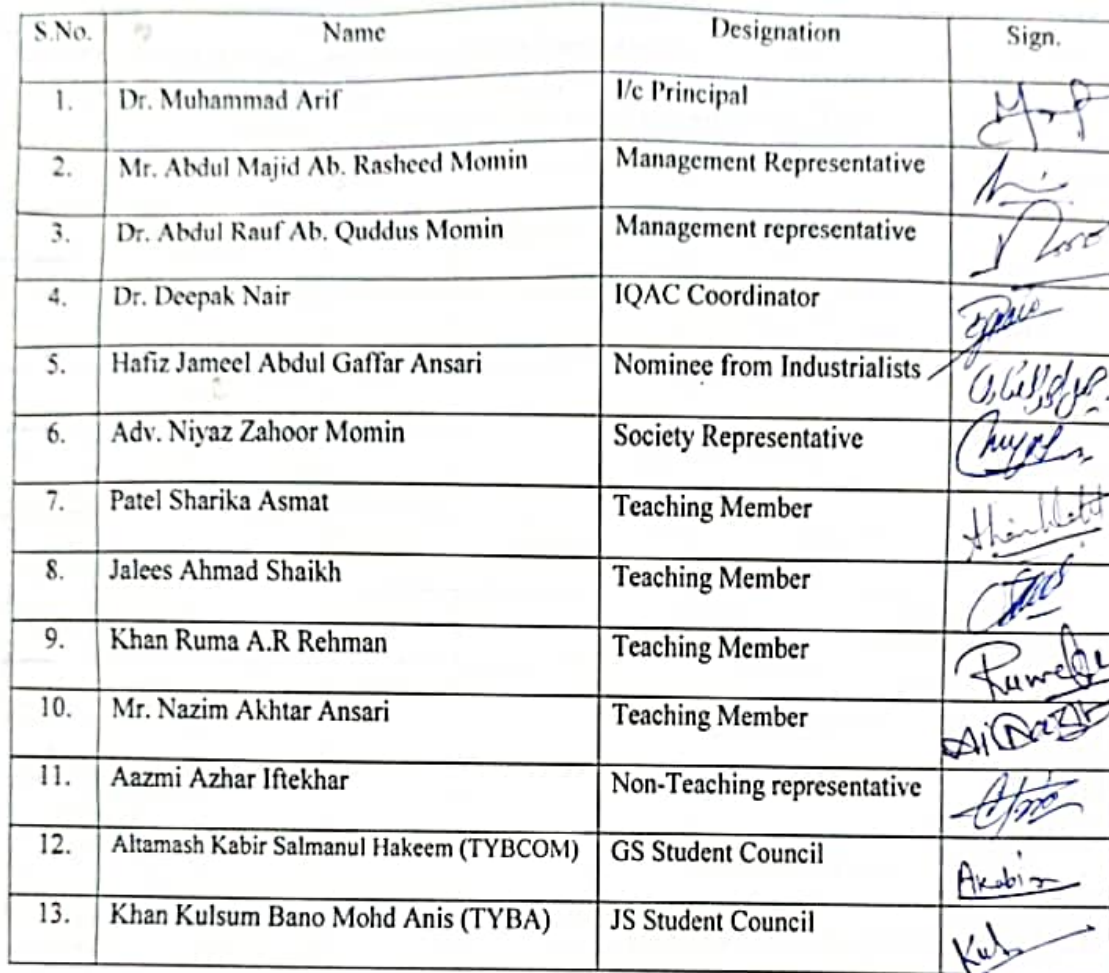 S.No. Name Designation Sign.
1. Dr. Muhammad Arif I/c Principal
2. Mr. Abdul Majid Ab. Rasheed Momin Management Representative
3. Dr. Abdul Rauf Ab. Quddus Momin Management representative
4. Dr. Deepak Nair IQAC Coordinator
5. Hafiz Jameel Abdul Gaffar Ansari Nominee from Industrialists
6. Adv. Niyaz Zahoor Momin Society Representative
7. Patel Sharika Asmat Teaching Member
8. Jalees Ahmad Shaikh Teaching Member
9. Khan Ruma A.R Rehman Teaching Member
10. Mr. Nazim Akhtar Ansari Teaching Member
11. Aazmi Azhar Iftekhar Non-Teaching representative
12. Altamash Kabir Salmanul Hakeem (TYBCOM) GS Student Council
13. Khan Kulsum Bano Mohd Anis (TYBA) JS Student Council